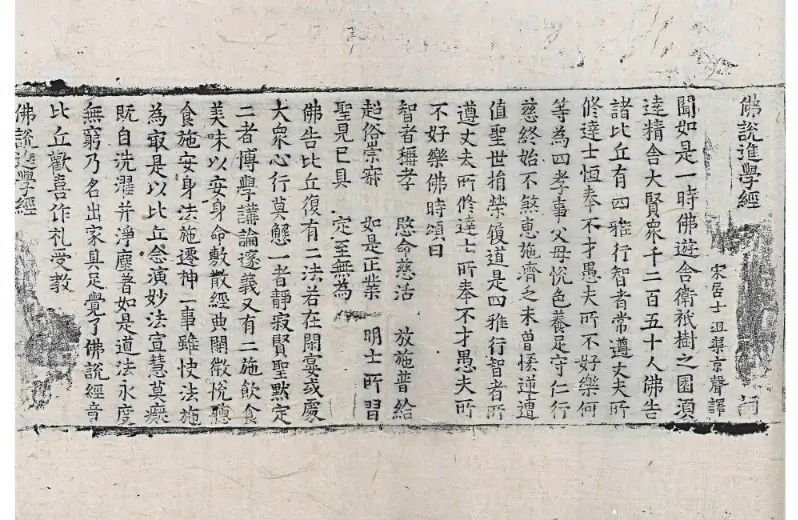 佛說進學經　詞
宋居士沮渠京聲譯
聞如是一時佛遊舍衛祇樹之園湏
達精舍大賢衆千二百五十人佛告
諸比丘有四雅行智者常遵丈夫所
修達士恒奉不才愚夫所不好樂何
等為四孝事父母悅色養足守仁行
慈終始不煞恵施濟乏未曾恡逆遭
值聖世捐榮履道是四雅行智者所
遵丈夫所修達士所奉不才愚夫所
不好樂佛時頌曰
智者稱孝　愍命慈活　放施普給
超俗崇寂　如是正業　明士所習
聖見已具　定至無為
佛告比丘復有二法若在閑宴或處
大衆心行莫懈一者靜寂賢聖黙定
二者博學講論邃義又有二施飲食
美味以安身命敷散經典開微悅聽
食施安身法施遷神二事雖快法施
為冣是以比丘念演妙法宣慧莫癡
既自洗濯并淨塵著如是道法永度
無窮乃名出家具足覺了佛說經音
比丘歡喜作礼受教
佛說進學經